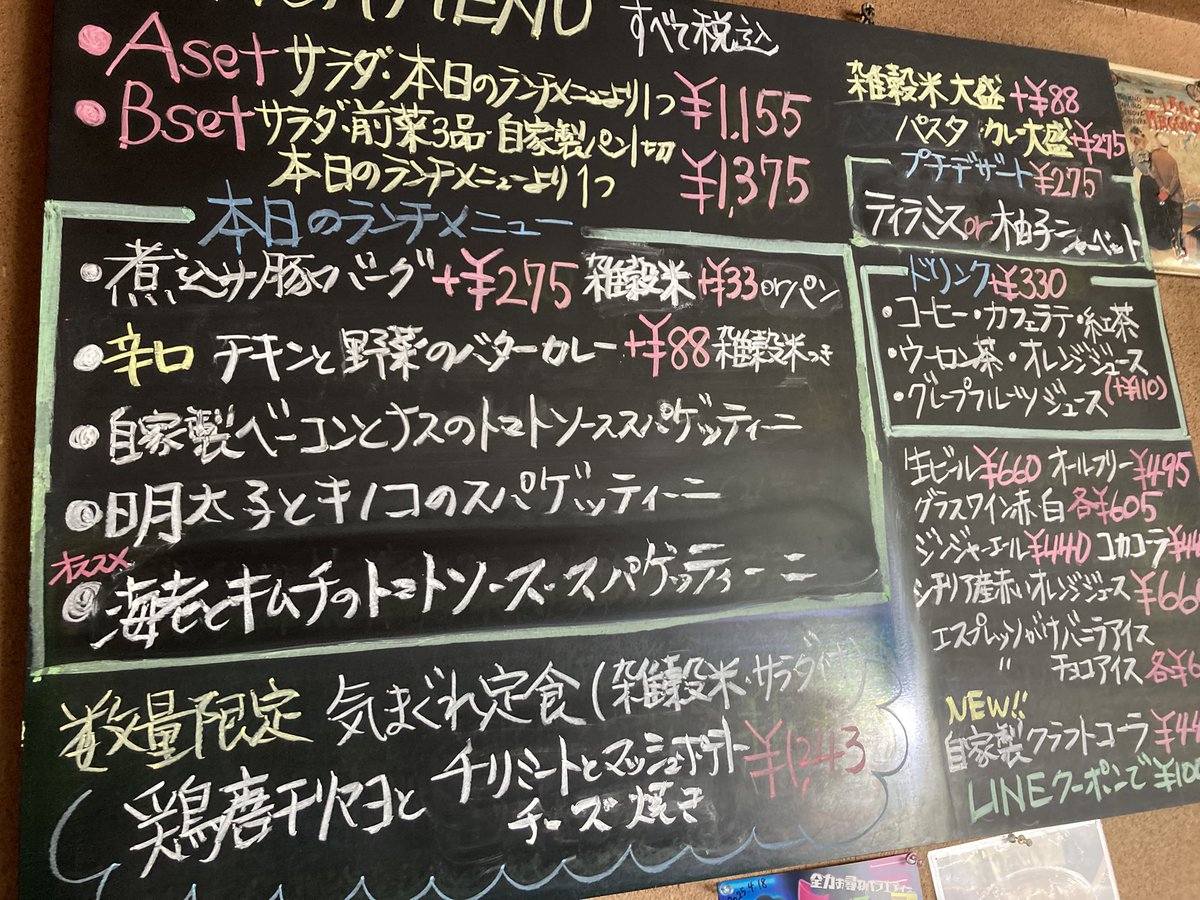 MENU
すべて税込
・Aset サラダ・本日のランチメニューより1つ ¥1,155
・Bset サラダ・前菜3品・自家製パン1切
本日のランチメニューより1つ ¥1,375
本日のランチメニュー
・煮込サ豚バーグ+¥275 雑穀米+¥33orパン
・辛口 チキンと野菜のバターカレー+¥88 雑穀米つき
・自家製ベーコンとナスのトマトソーススパゲッティーニ
・明太子とキノコのスパゲッティーニ
オススメ
・海老とキムチのトマトソース・スパゲッティーニ
数量限定 気まぐれ定食(雑穀米・サラダ付
鶏唐チリマヨと チリミートとマッシュポテト
チーズ焼き ¥1,243
雑穀米大盛+¥88
パスタ カレー大盛+¥275
プチデザート¥275
ティラミスor柚子シャーベット
ドリンク+¥330
・コーヒー・カフェラテ・紅茶
・ウーロン茶・オレンジジュース
・グレープフルーツジュース(+¥110)
生ビール¥660 オールフリー¥495
グラスワイン赤・白 各¥605
ジンジャーエール¥440 コカコラ¥44
シチリア産赤いオレンジジュース¥66
エスプレッソがけバニラアイス
〃 チョコアイス 各¥
NEW!!
自家製クラフトコーラ¥44
LINEクーポンで¥100
2025.4.18